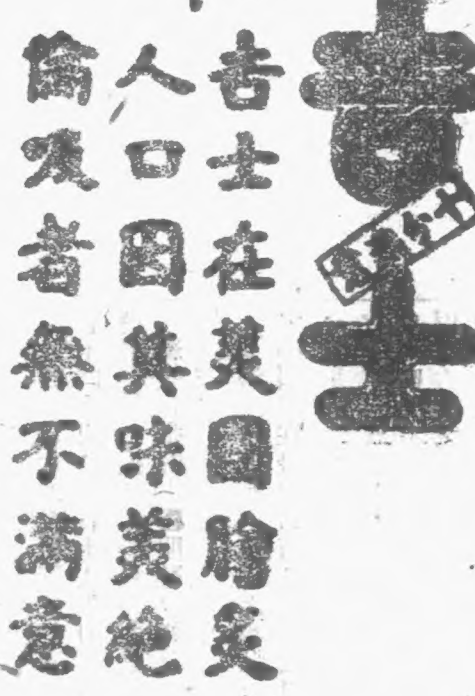 吉士
吉士在美國膾炙
人口因其味美絕
倫吸者無不滿意